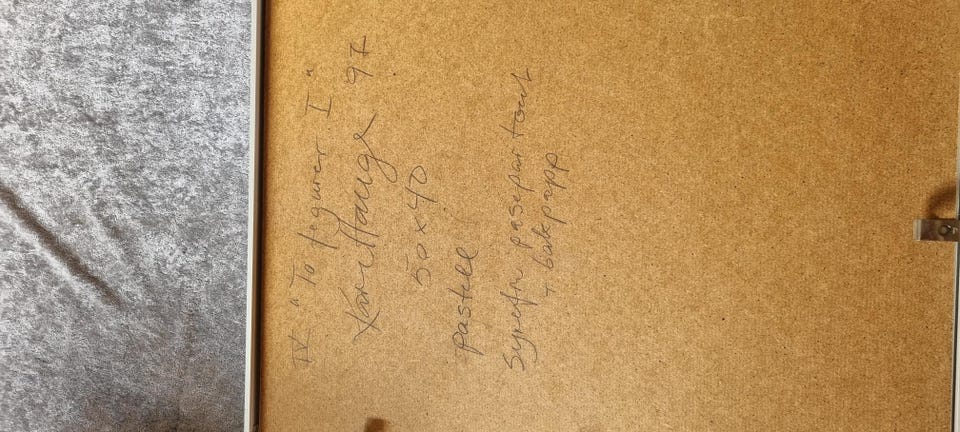 IV "To figurer I"
Kari Hauge 97
50 x 40
pastell
Syrefri pasepartout
+ bakpapp